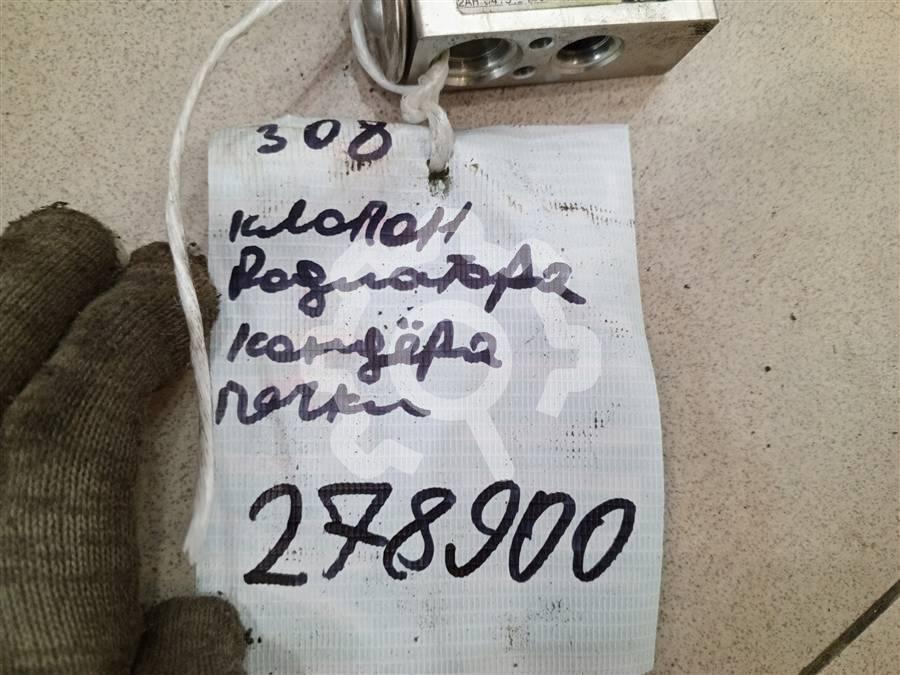 308
клапан
радиатора
кондёра
печки
278900